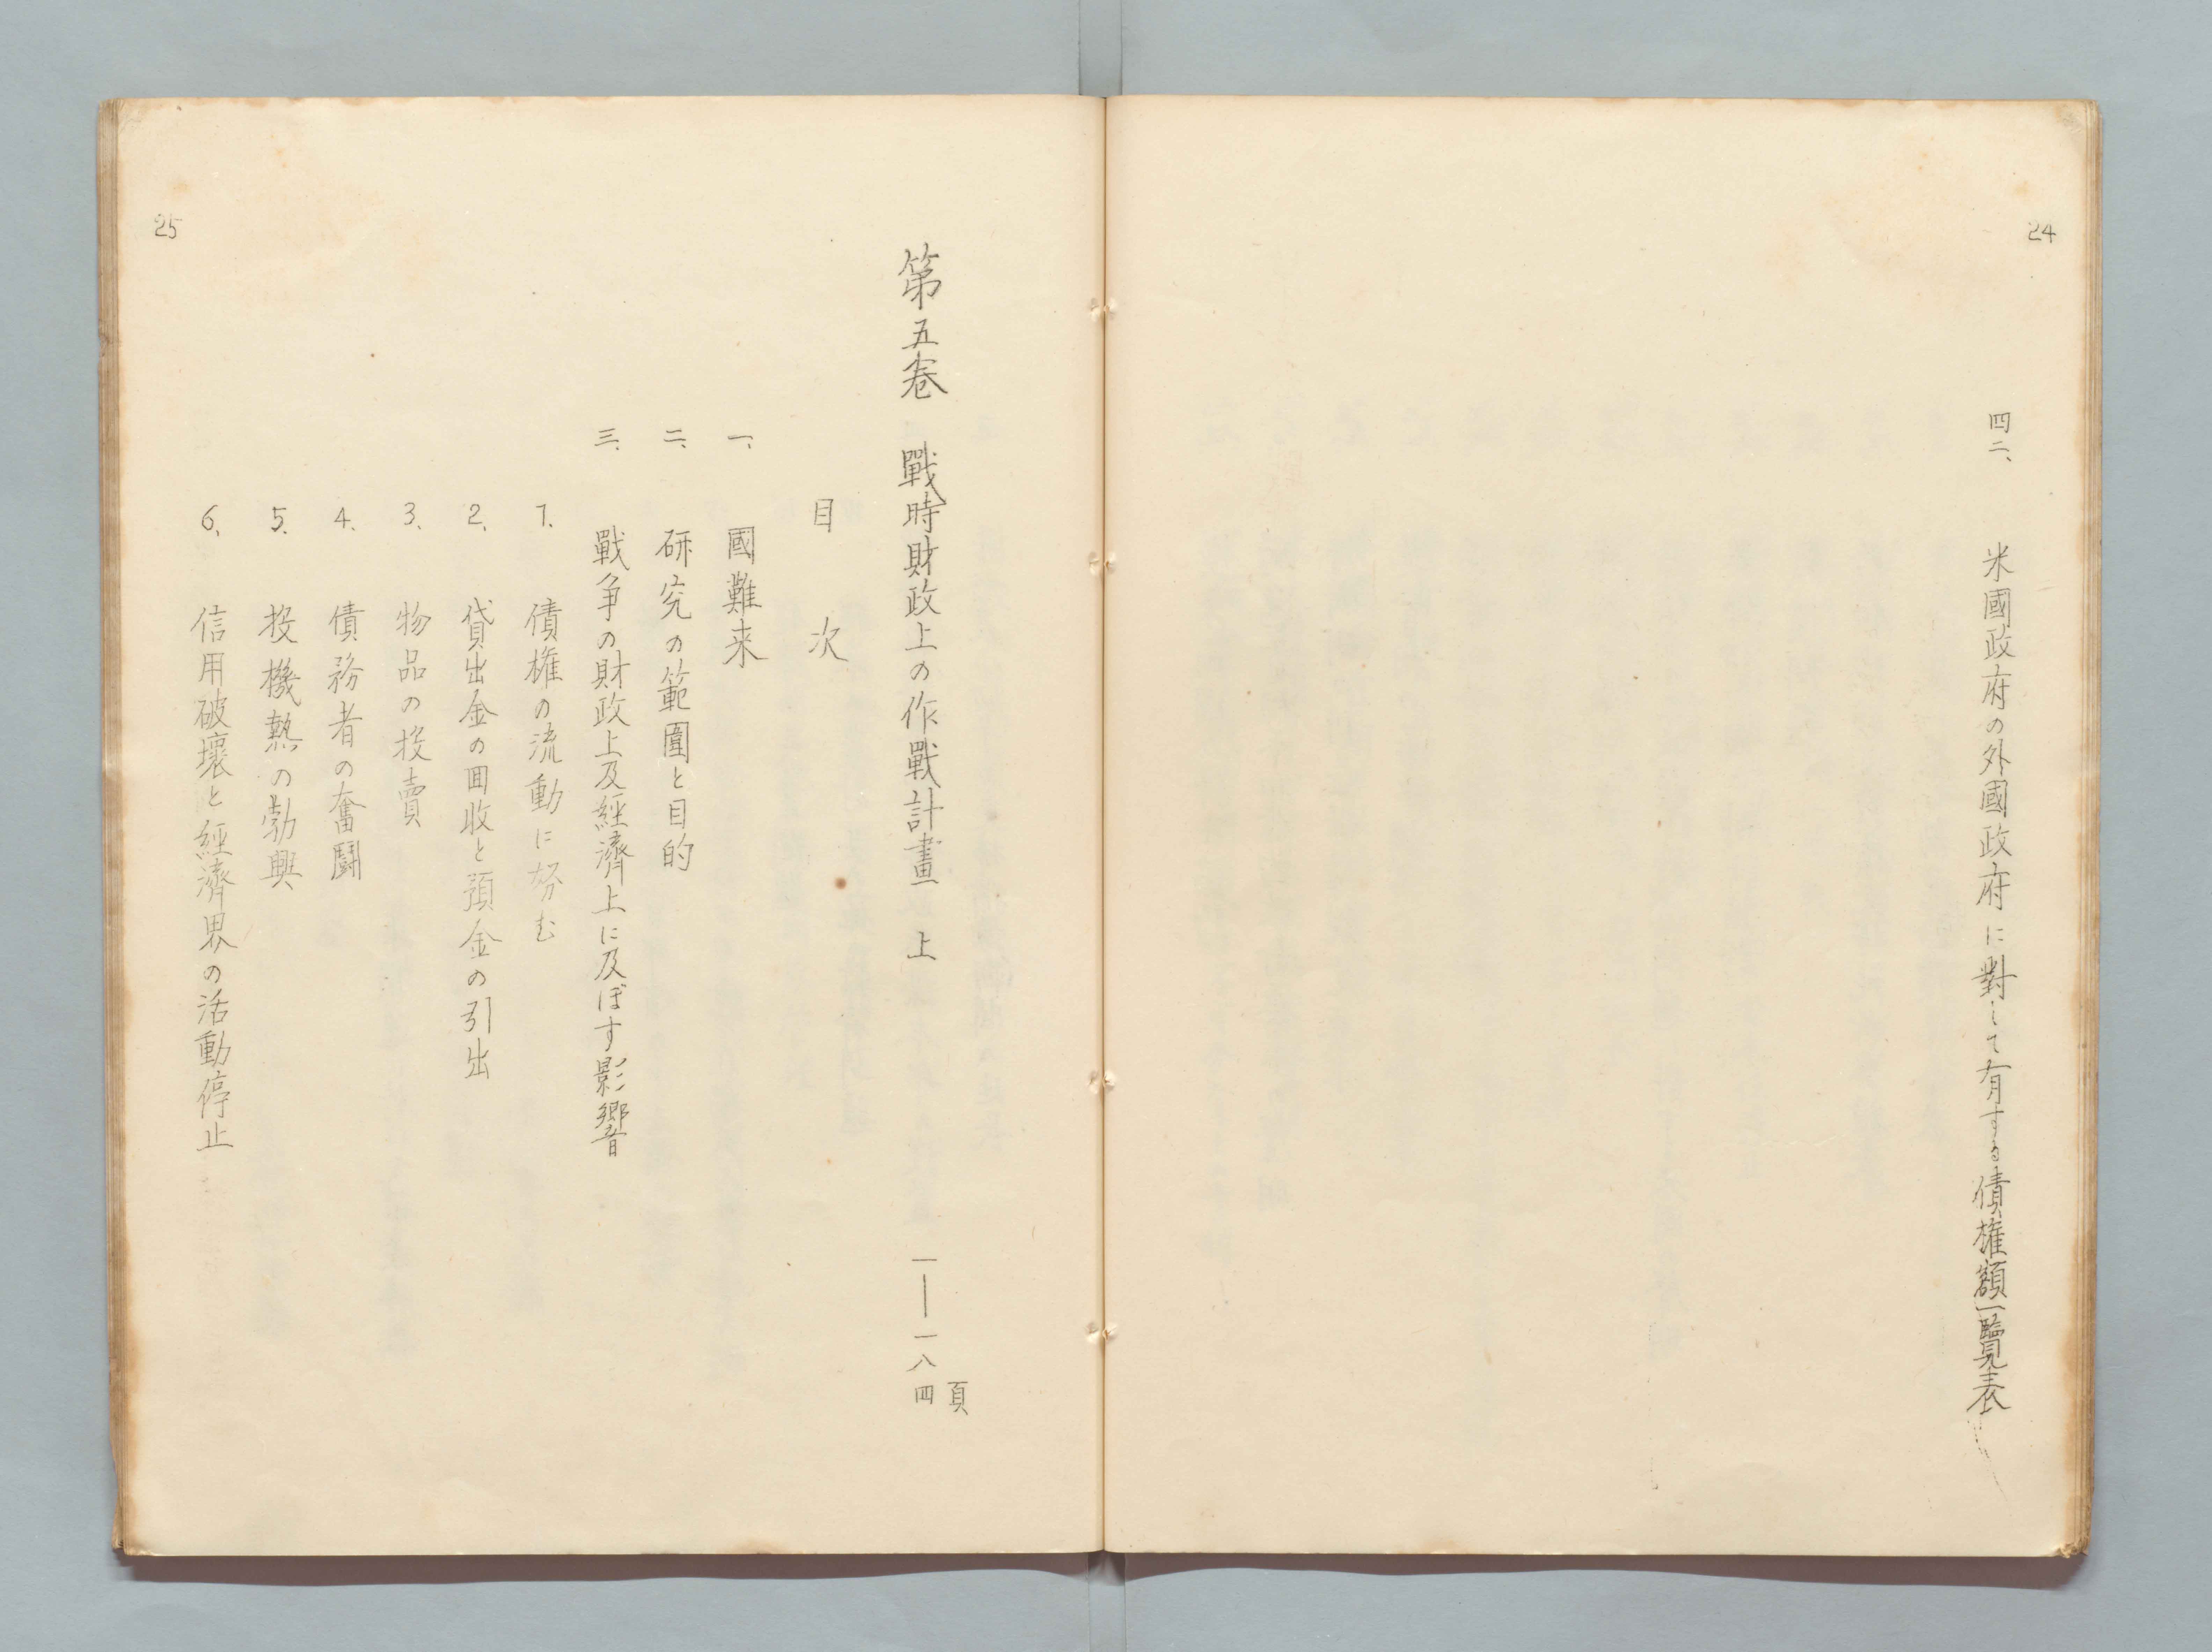 24
四二、 米國政府の外國政府に對して有する債権額一覽表
第五巻 戰時財政上の作戰計畫 上 一―一八四頁
目次
一、 國難来
二、 研究の範圍と目的
三、 戰争の財政上及経濟上に及ぼす影響
1. 債権の流動に努む
2. 貸出金の回收と預金の引出
3. 物品の投賣
4. 債務者の奮闘
5. 投機熱の勃興
6. 信用破壞と経濟界の活動停止
25